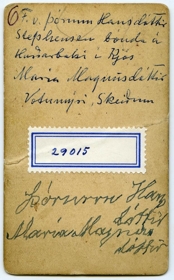 F. v. Þórunn Hansdóttir
Stephensen bónda á
Hurðarbaki í Kjós
María Magnúsdóttir
Votumýri, Skeiðum
29015
Þórunn Han
dóttir
María Magnús
dóttir